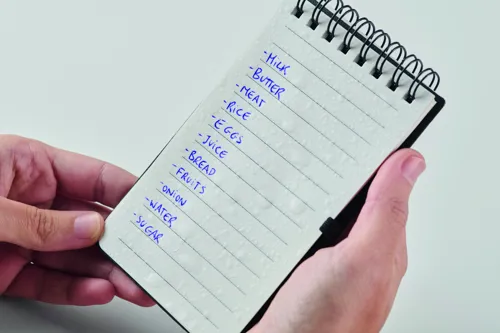 -MILK
-BUTTER
-MEAT
-RICE
-EGGS
-JUICE
-BREAD
-FRUITS
-ONION
-WATER
-SUGAR